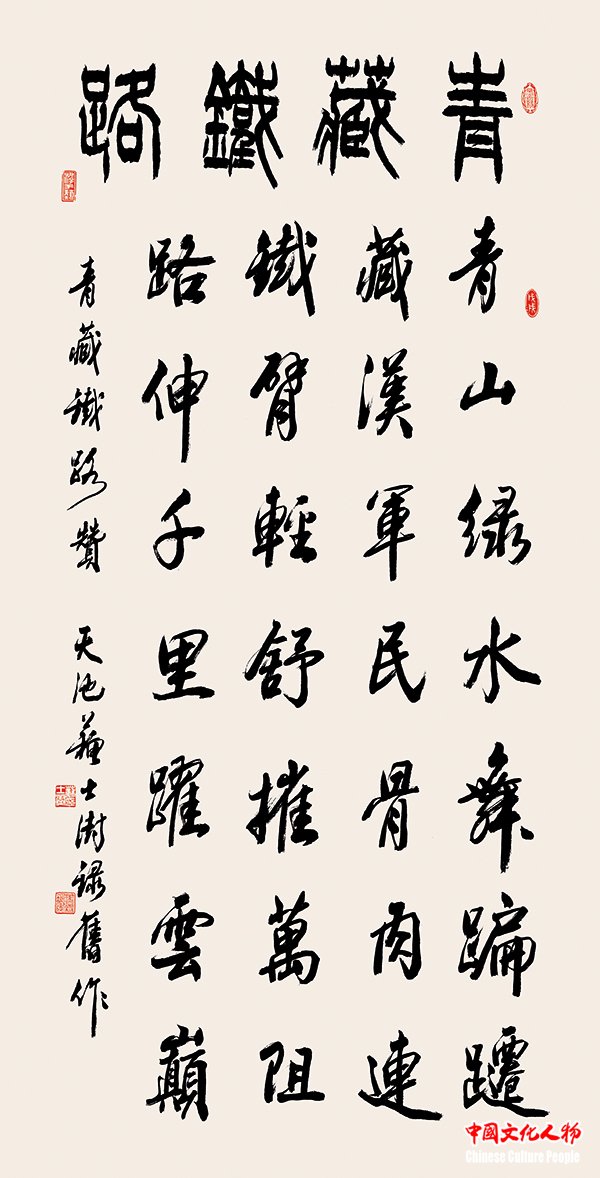 青藏鐵路
青山绿水舞蹁躚
藏漢軍民骨肉連
鐵臂輕舒摧萬阻
路伸千里躍雲巔
青藏鐵路贊 天池蘇士澍錄舊作
戊戌
中國文化人物
Chinese Culture People